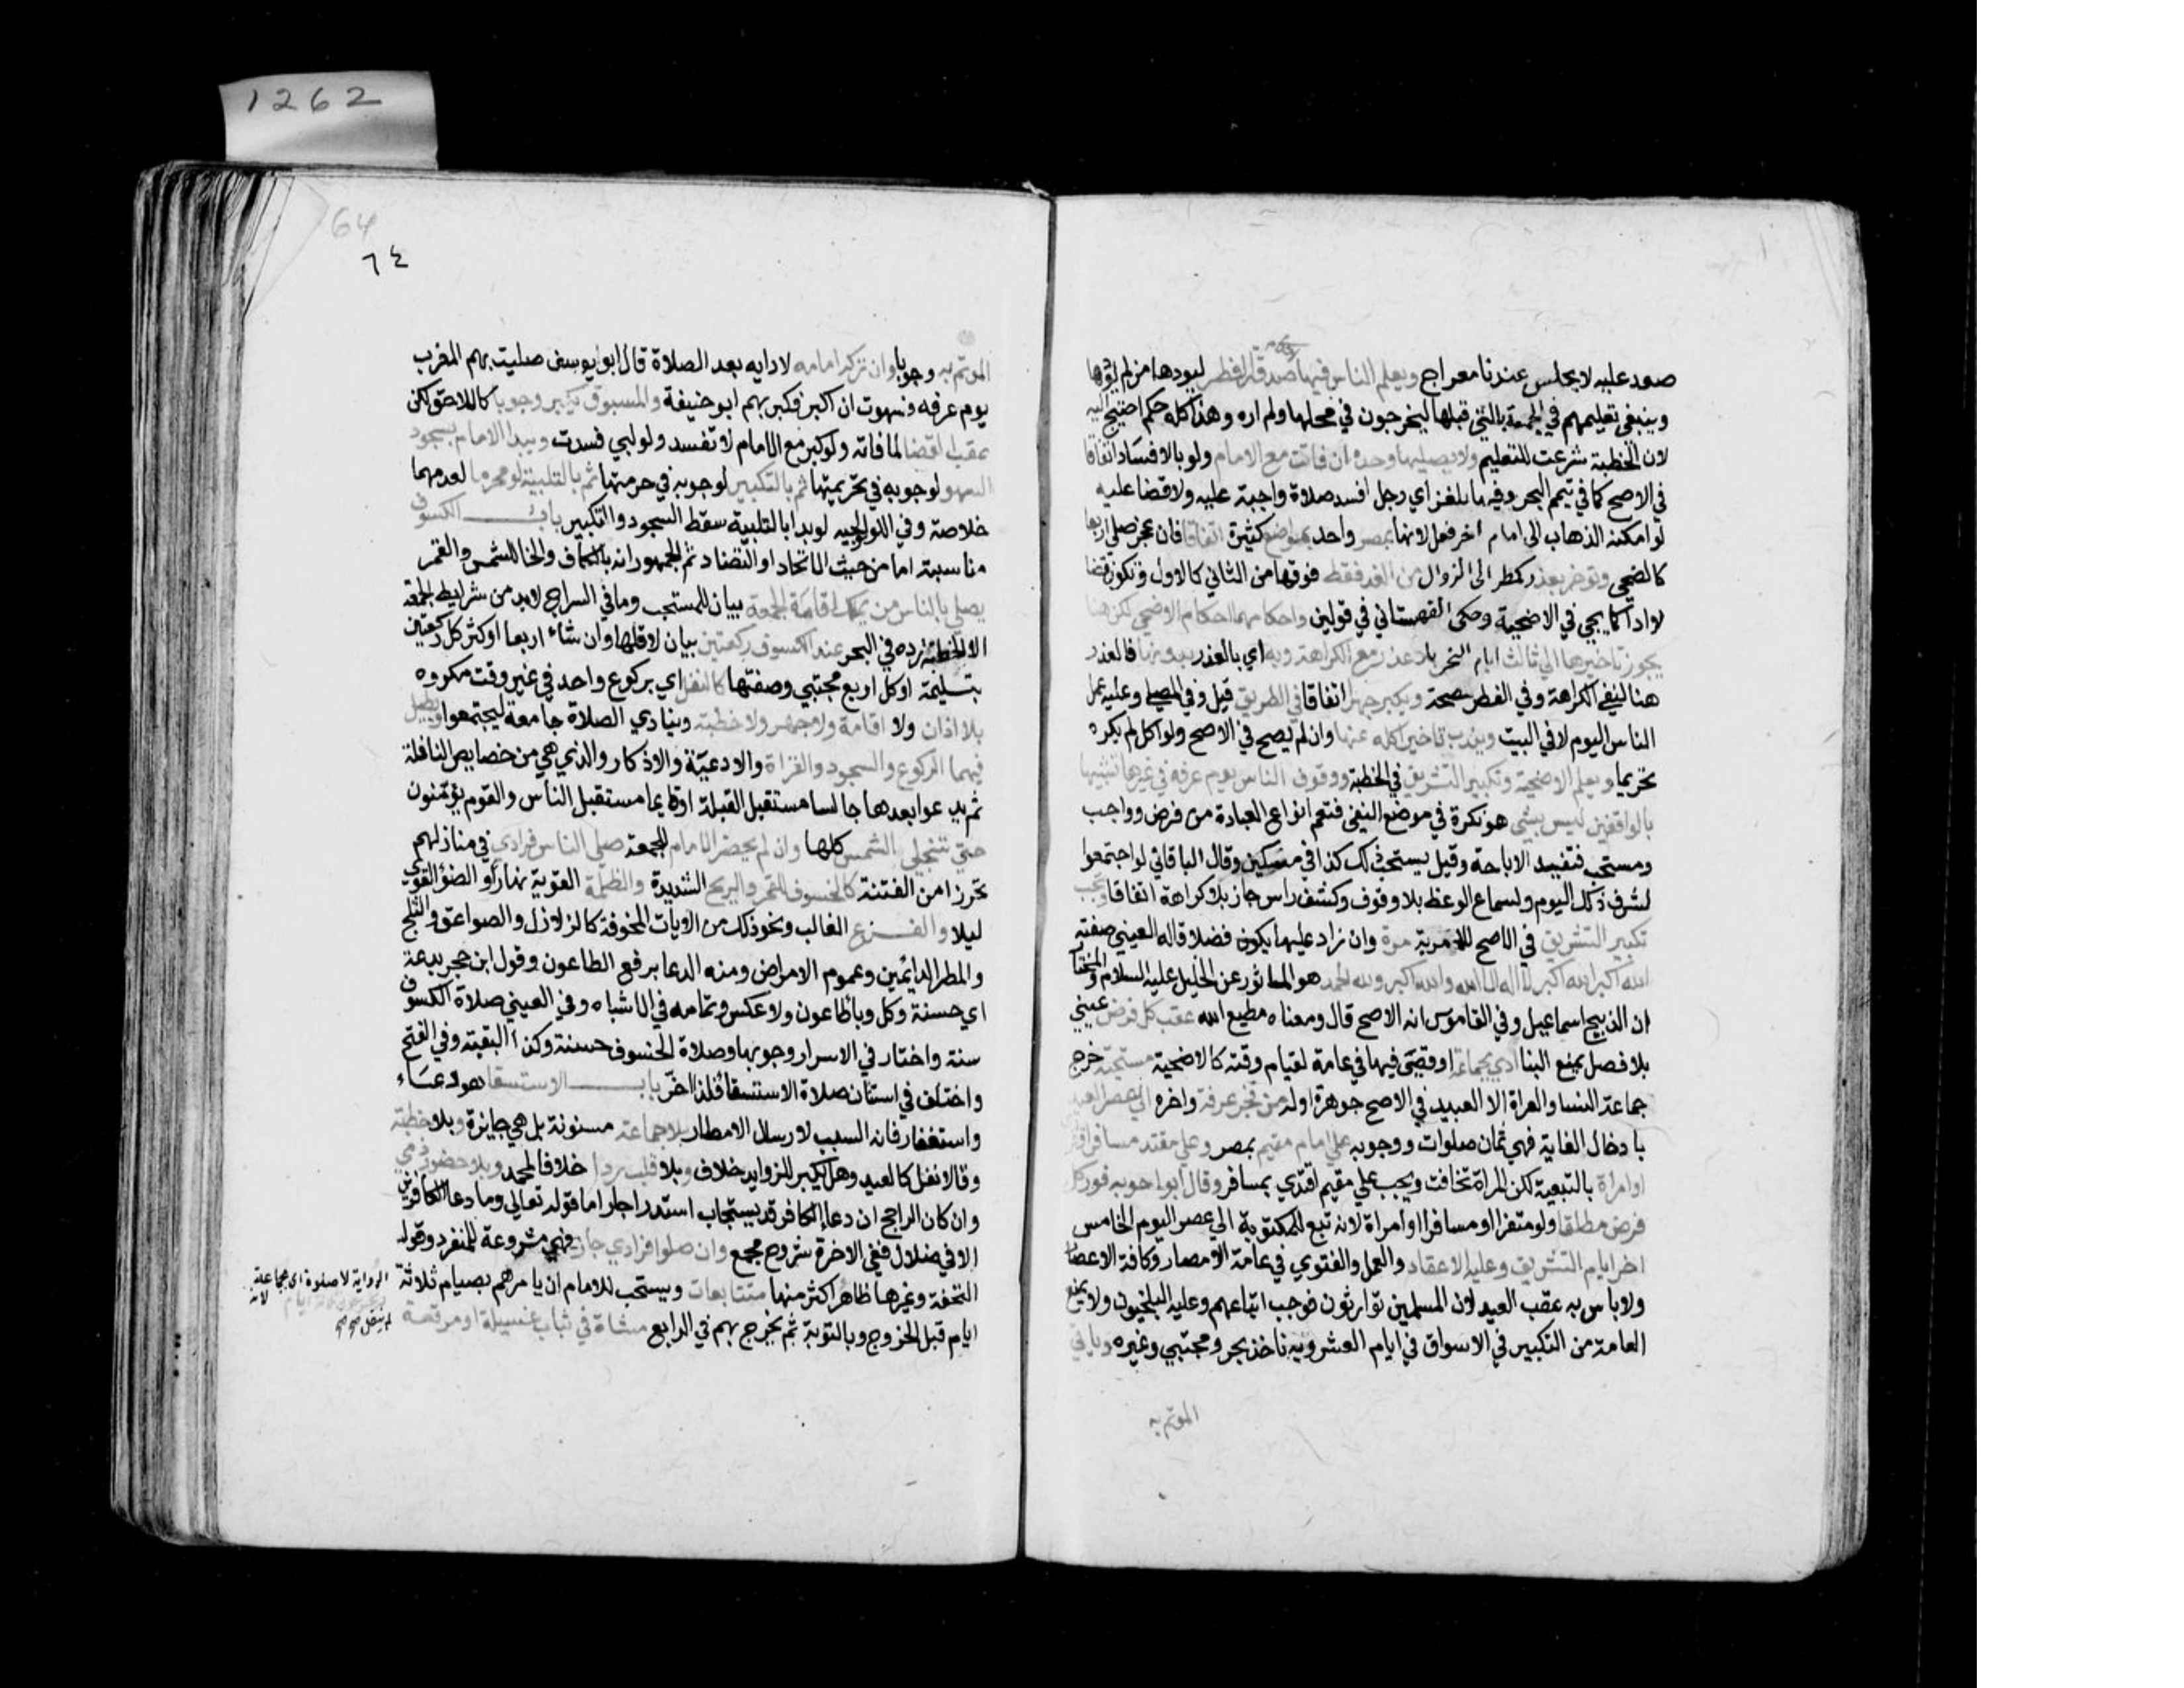 1262
صعد عليه لا يجلس عندنا معراج ويعلم الناس فيها احكام صدقة الفطر ليودها من لم يؤدها
وينبغي تعليمهم في الجمعة التي قبلها ليخرجون في محلها ولم اره وهذا كله حكم احتيج اليه
لان الخطبة شرعت للتعليم ولا يصليها وحده ان فاتت مع الامام ولو بالافساد اتفاقا
في الاصح كما في تيمم البحر وفيه ما يلغز اي رجل افسد صلاة واجبة عليه ولا قضا عليه
لو امكنه الذهاب الى امام اخر فعل لانها بمصر واحد بمواضع كثيرة اتفاقا فان عجز صلى اربعا
كالضحى وتوخر بعذر كمطر الى الزوال من الغد فقط فوقتها من الثاني كالاول وتكون قضا
لا ادا كما يجي في الاضحية وحكى القهستاني في قولين واحكامها احكام الاضحى لكن هنا
يجوز تاخيرها الى ثالث ايام النحر بلا عذر مع الكراهة وبه اي بالعذر بدونها فالعذر
هنا لنفي الكراهة وفي الفطر للصحة ويكبر جهرا اتفاقا في الطريق قيل وفي المصلى وعليه عمل
الناس اليوم لا في البيت ويندب تاخير اكله عنها وان لم يضح في الاصح ولو اكل لم يكره
تحريما ويعلم الاضحية وتكبير التشريق في الخطبة ووقوف الناس يوم عرفة في غيرها تشبيها
بالواقفين ليس بشي هو نكرة في موضع النفي فتعم انواع العبادة من فرض وواجب
ومستحب فتفيد الاباحة وقيل يستحب ذلك كذا في مسكين وقال الباقاني لو اجتمعوا
لشرف ذلك اليوم ولسماع الوعظ بلا وقوف وكشف راس جاز بلا كراهة اتفاقا ويجب
تكبير التشريق في الاصح للامر به مرة وان زاد عليها يكون فضلا قاله العيني صفته
الله اكبر الله اكبر لا اله الا الله والله اكبر ولله الحمد هو الماثور عن الخليل عليه السلام والمختار
ان الذبيح اسماعيل وفي القاموس انه الاصح قال ومعناه مطيع الله عقب كل فرض عيني
بلا فصل يمنع البنا ادي بجماعة او قضي فيها في عامه لقيام وقته كالاضحية مستحبة خرج
جماعة النسا والعراة الا العبيد في الاصح جوهرة اوله من فجر عرفة واخره الى عصر العيد
با دخال الغاية فهي ثمان صلوات ووجوبه على امام مقيم بمصر وعلى مقتد مسافر او
اوامراة بالتبعية لكن المراة تخافت ويجب على مقيم اقتدي بمسافر وقالا بوجوبه فور كل
فرض مطلقا ولو منفردا او مسافرا او امراة لانه تبع للمكتوبة الى عصر اليوم الخامس
اخر ايام التشريق وعليه الاعتماد والعمل والفتوي في عامة الامصار وكافة الاعصار
ولا باس به عقب العيد لان المسلمين توارثوه فوجب اتباعهم وعليه البلخيون ولا يمنع
العامة من التكبير في الاسواق في ايام العشر وبه ناخذ بحر ومجتبي وغيره وياتي
الموتم به
64
٦٤
الموتم به وجوبا وان تركه امامه لادايه بعد الصلاة قال ابو يوسف صليت بهم المغرب
يوم عرفه فسهوت ان اكبر فكبر بهم ابو حنيفة والمسبوق يكبر وجوبا كاللاحق لكن
عقب القضا لما فاته ولو كبر مع الامام لا تفسد ولو لبي فسدت ويبدا الامام بسجود
السهو لوجوبه في تحريمتها ثم بالتكبير لوجوبه في حرمتها ثم بالتلبية لو محرما لعدمهما
خلاصة وفي الولوالجيه لو بدا بالتلبية سقط السجود والتكبير باب الكسوف
مناسبته اما من حيث الاتحاد او التضاد ثم الجمهور انه بالكاف والخا للشمس والقمر
يصلي بالناس من يملك اقامة الجمعة بيان للمستحب وما في السراج لا بد من شرايط الجمعة
الا الخطبة رده في البحر عند الكسوف ركعتين بيان لاقلها وان شاء اربعا او اكثر كل ركعتين
بتسليمة او كل اربع مجتبي وصفتها كالنفل اي بركوع واحد في غير وقت مكروه
بلا اذان ولا اقامة ولا جهر ولا خطبة وينادي الصلاة جامعة ليجتمعوا ويطيل
فيهما الركوع والسجود والقراة والادعية والاذكار والذي هي من خصايص النافلة
ثم يدعوا بعدها جالسا مستقبل القبلة او قايما مستقبل الناس والقوم يؤمنون
حتي تنجلي الشمس كلها وان لم يحضر الامام للجمعة صلي الناس فرادي في منازلهم
تحرزا من الفتنة كالخسوف للقمر والريح الشديدة والظلمة القوية نهارا والضؤ القوي
ليلا والفزع الغالب ونحو ذلك من الايات المخوفة كالزلازل والصواعق والثلج
والمطر الدايمين وعموم الامراض ومنه الدعا برفع الطاعون وقول ابن حجر بدعة
اي حسنة وكل وبا طاعون ولا عكس وتمامه في الاشباه وفي العيني صلاة الكسوف
سنة واختار في الاسرار وجوبها وصلاة الخسوف حسنة وكذا البقية وفي الفتح
واختلف في استنان صلاة الاستسقا فلذا اخر باب الاستسقا هو دعاء
واستغفار فانه السبب لارسال الامطار بلا جماعة مسنونة بل هي جايزة وبلا خطبة
وقالا تفعل كالعيد وهل يكبر للزوايد خلاف وبلا قلب ردا خلافا لمحمد وبلا حضور ذمي
وان كان الراجح ان دعا الكافر قد يستجاب استدراجا واما قوله تعالي وما دعا الكافرين
الا في ضلال ففي الاخرة شروح مجمع وان صلوا فرادي جاز فهي مشروعة للمنفرد وقوله
التحفة وغيرها ظاهر الرواية لا صلوة اي بجماعة متتابعات ويستحب للامام ان يامرهم بصيام ثلاثة
ايام قبل الخروج وبالتوبة ثم يخرج بهم في الرابع مشاة في ثياب غسيلة او مرقعة